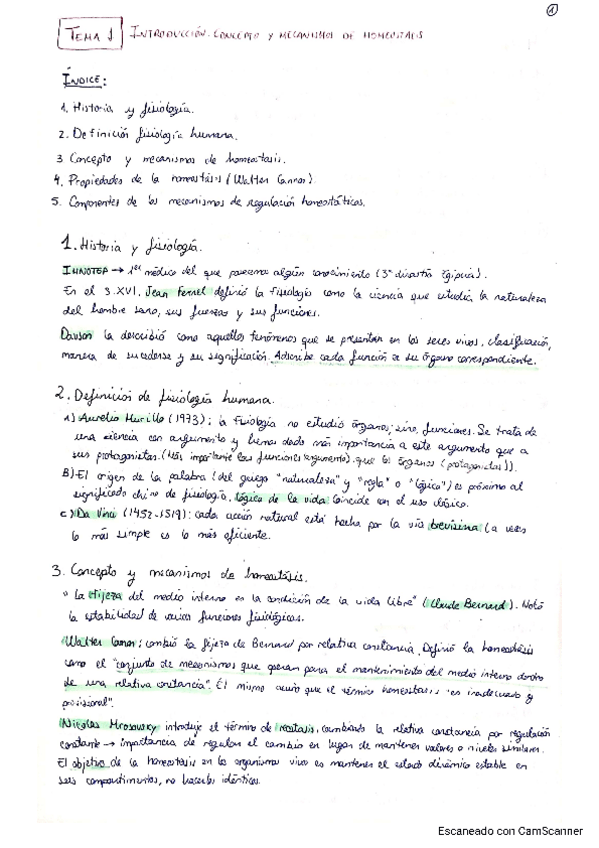 1
TEMA 1 INTRODUCCIÓN. CONCEPTO Y MECANISMOS DE HOMEOSTASIS
ÍNDICE:
1. Historia y fisiología.
2. Definición fisiología humana.
3. Concepto y mecanismos de homeostasis.
4. Propiedades de la homeostásis (Walter Cannon).
5. Componentes de los mecanismos de regulación homeostáticos.
1. Historia y fisiología.
IHNOTEP → 1er médico del que poseemos algún conocimiento (3ª dinastía Egipcia).
En el S.XVI, Jean Fernel definió la Fisiología como la ciencia que estudia la naturaleza
del hombre sano, sus fuerzas y sus funciones.
Dawson la describió como aquellos fenómenos que se presentan en los seres vivos, clasificación,
manera de sucederse y su significación. Adscribe cada función a su órgano correspondiente.
2. Definición de fisiología humana.
A) Aurelio Murillo (1973): la Fisiología no estudia órganos; sino, funciones. Se trata de
una ciencia con argumento y hemos dado más importancia a este argumento que a
sus protagonistas. (Más importante las funciones (argumento) que los órganos (protagonistas)).
B) El origen de la palabra (del griego "naturaleza" y "regla" o "lógica") es próximo al
significado chino de fisiología, lógica de la vida. Coincide con el uso clásico.
C) Da Vinci (1452-1519): cada acción natural está hecha por la vía brevísima (a veces
lo más simple es lo más eficiente.
3. Concepto y mecanismos de homeostásis.
"La fijeza del medio interno es la condición de la vida libre" (Claude Bernard). Notó
la estabilidad de varias funciones fisiológicas.
Walter Cannon: cambió la fijeza de Bernard por relativa constancia. Definió la homeostásis
como el "conjunto de mecanismos que operan para el mantenimiento del medio interno dentro
de una relativa constancia". Él mismo que el término homeostasis "es inadecuado y
provisional".
Nicolas Mrosovsky introduje el término de reostasis, cambiando la relativa constancia por regulación
constante → importancia de regular el cambio en lugar de mantener valores o niveles similares.
El objetivo de la homeostasis en los organismos vivos es mantener el estado dinámico estable en
sus compartimentos, no hacerlos idénticos.
Escaneado con CamScanner